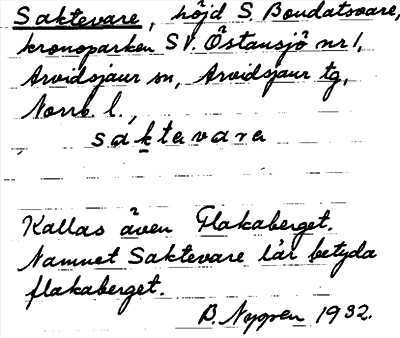 Saktevare, höjd S. Boudatsvare,
kronoparken SV. Östansjö nr 1,
Arvidsjaur sn, Arvidsjaur tg,
Norrb. l.,
saktevare
Kallas även Flakaberget.
Namnet Saktevare lär betyda
flakaberget.
B. Nygren 1932.